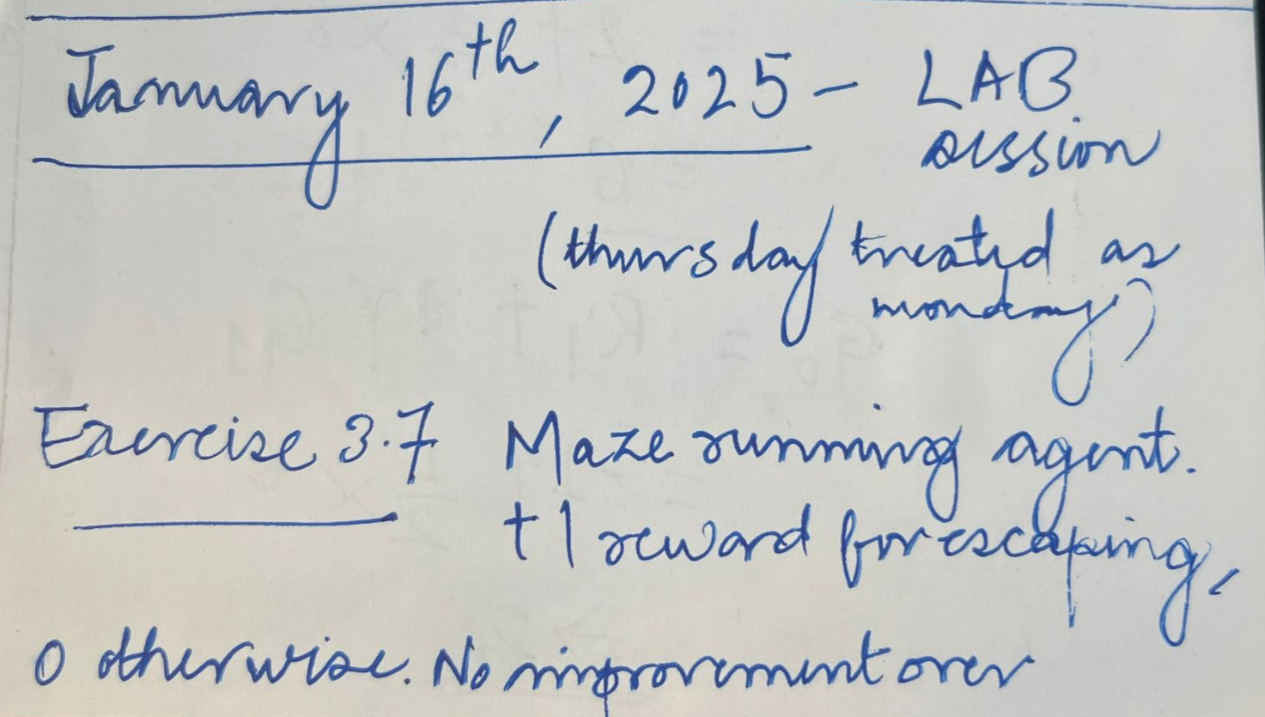 January 16th, 2025 - LAB
session
(thursday treated as
monday)
Exercise 3.7 Maze running agent.
+1 reward for escaping,
0 otherwise. No improvement over